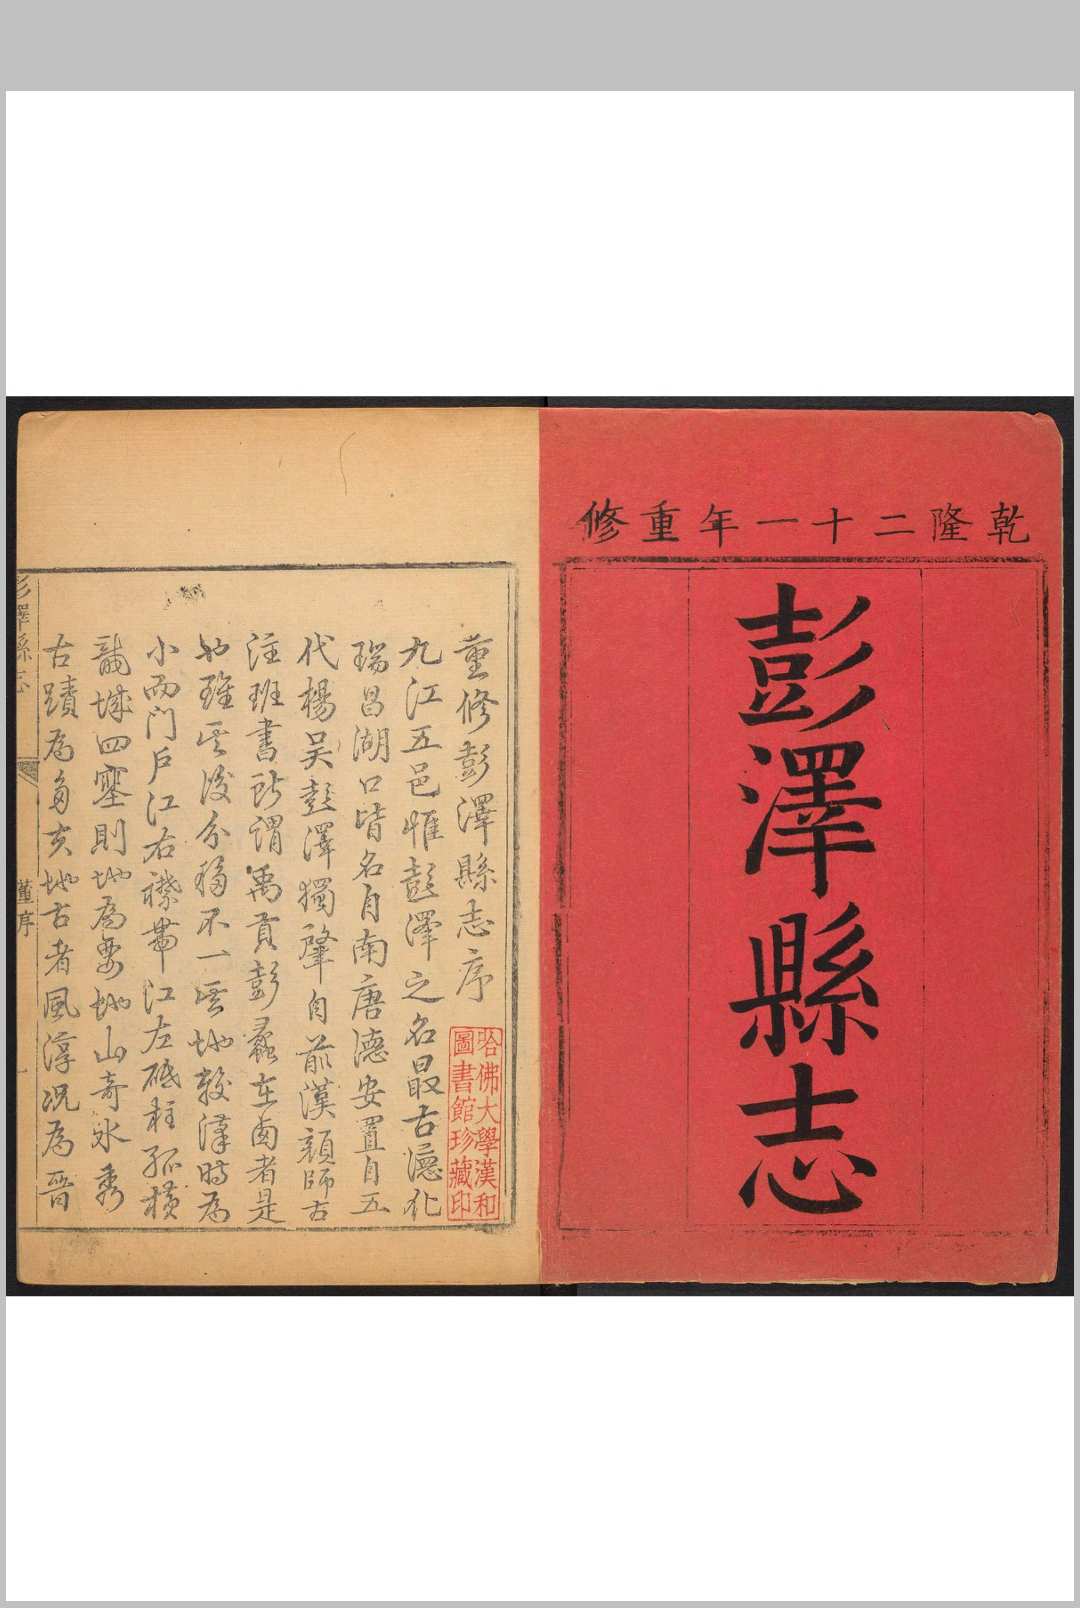 乾隆二十一年重修
彭澤縣志
重修彭澤縣志序
九江五邑惟彭澤之名最古德化
瑞昌湖口皆名自南唐德安置自五
代楊吳彭澤獨肇自前漢顏師古
注班書所謂禹貢彭蠡在西者是
也雖其後分移不一其地較漢時為
小而門戶江右襟帶江左砥柱孤橫
龍城四塞則地為要地山奇水秀
古蹟為多夫地古者風淳況為晉
哈佛大學漢和
圖書館珍藏印
彭澤縣志
董序
一